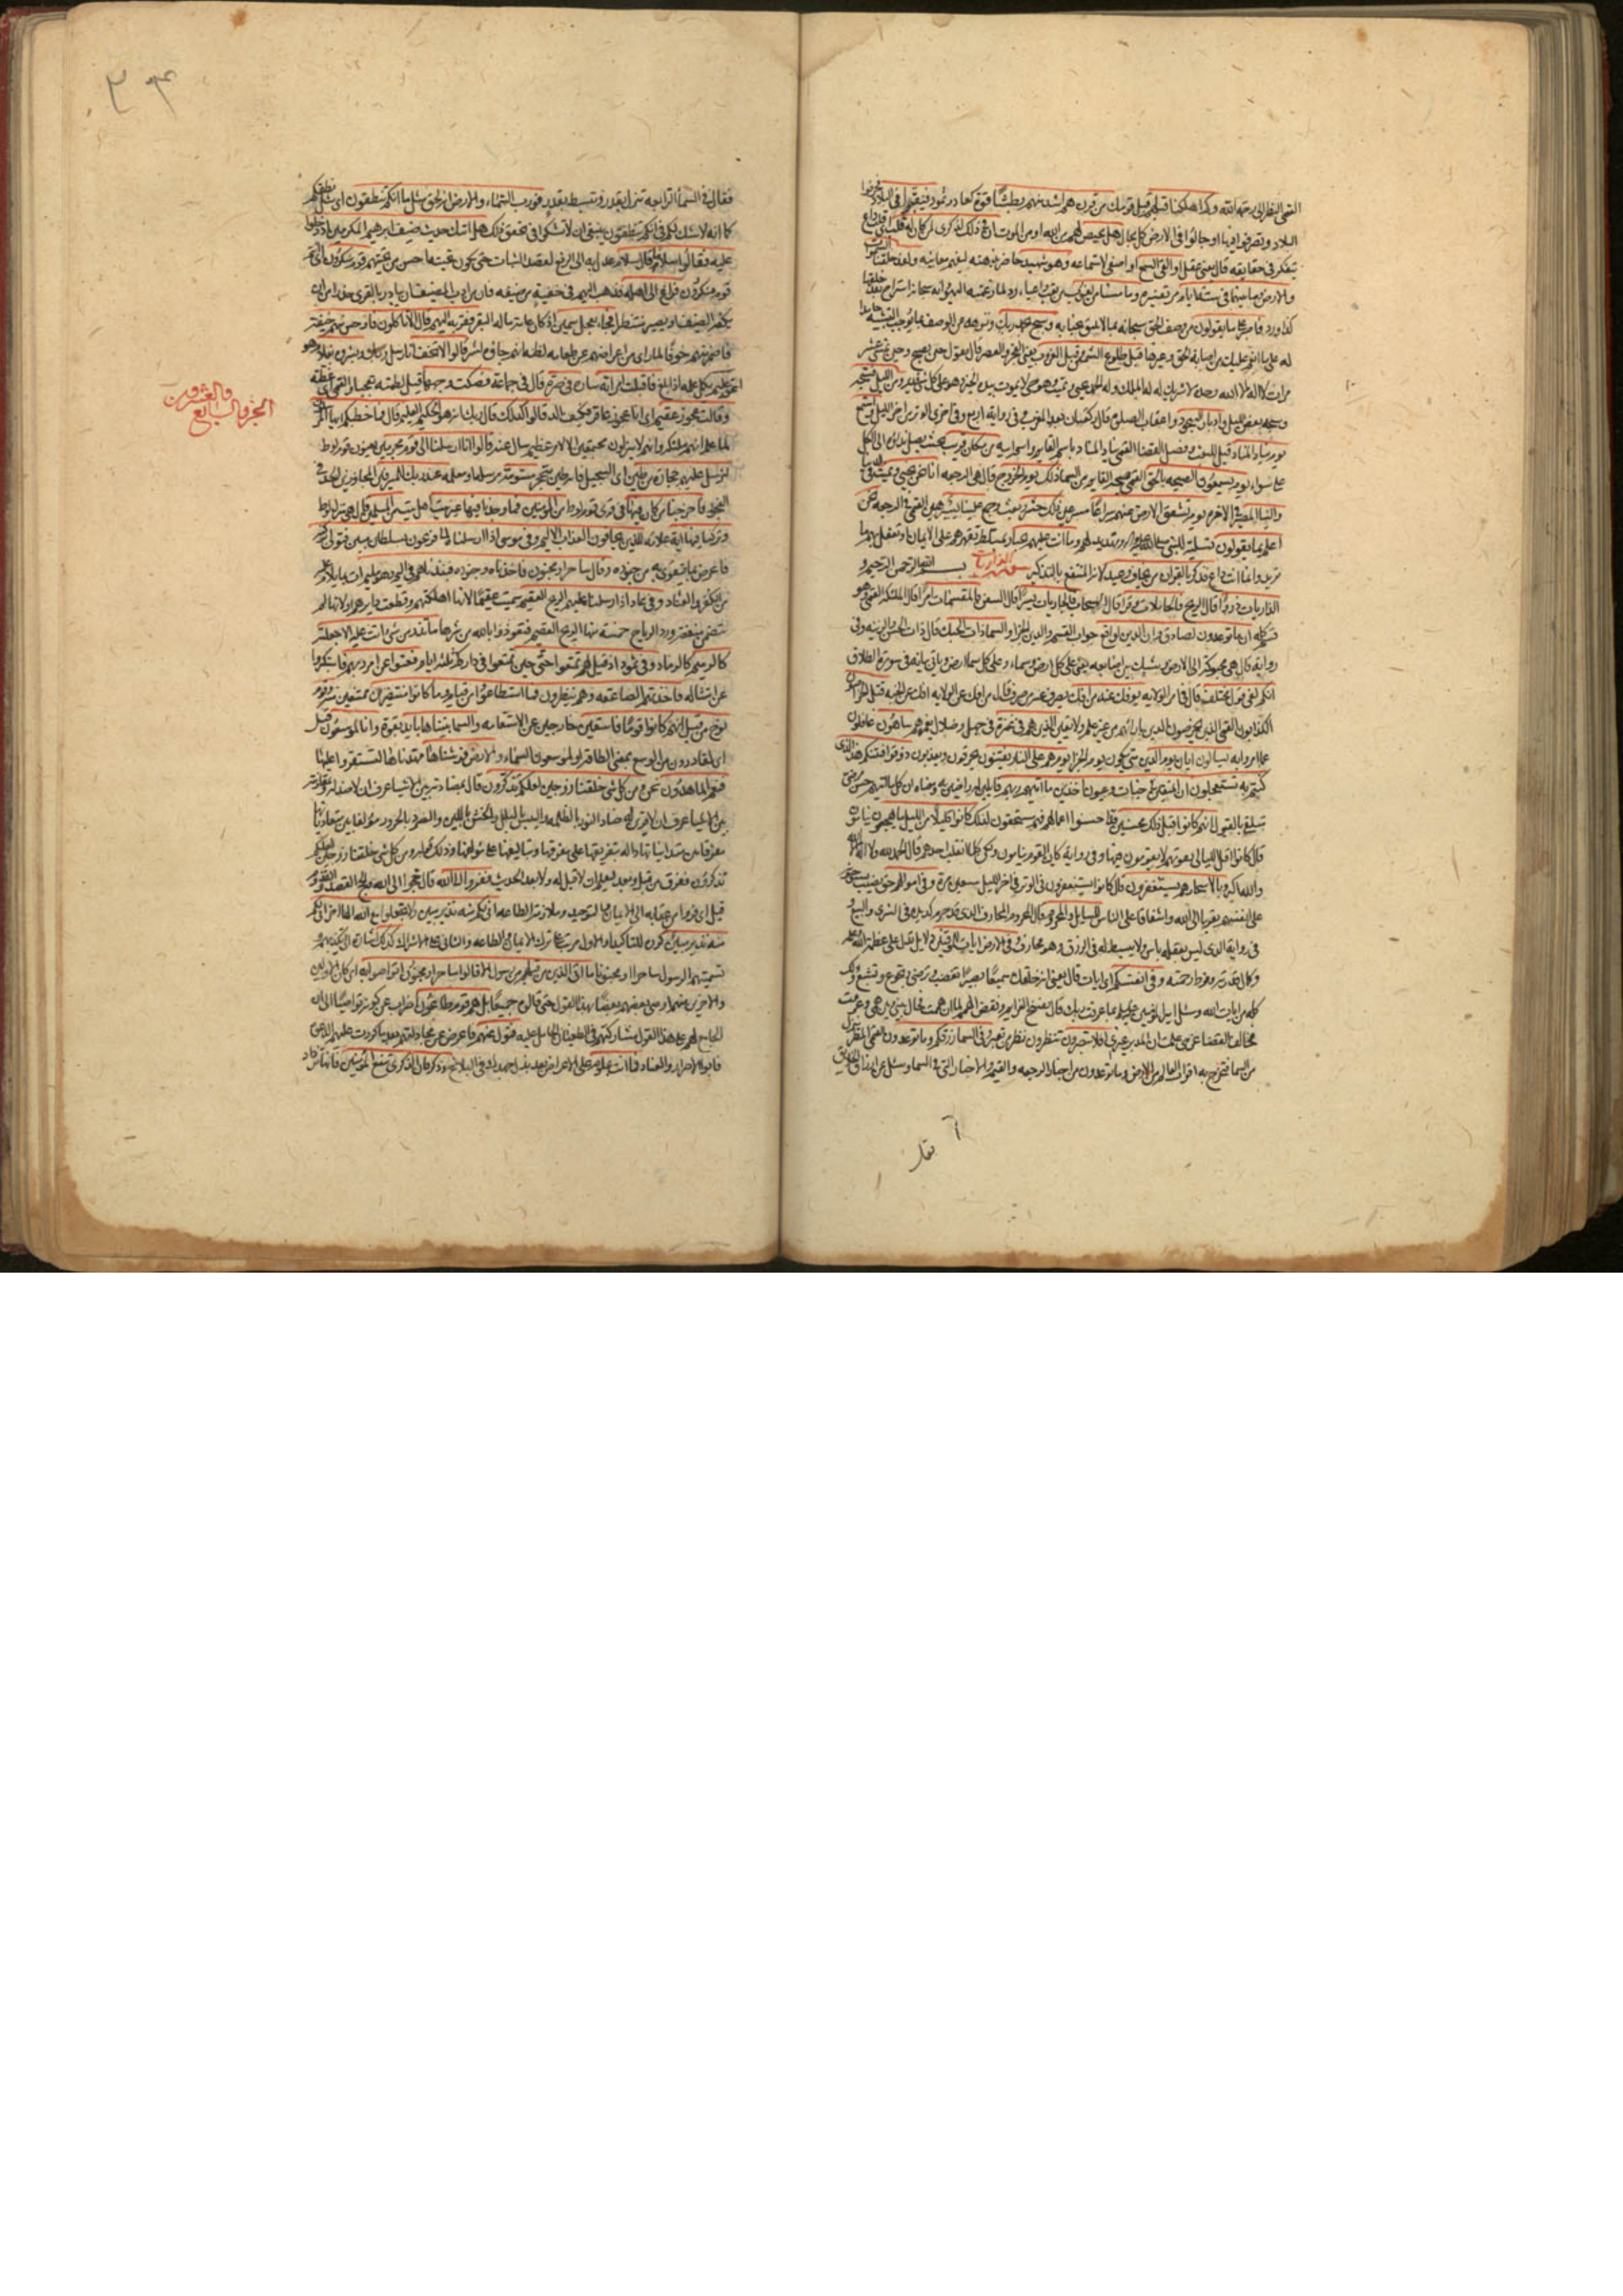 القمي النظر الى رحمة الله وكم اهلكنا قبلهم قبل قومك من قرن هم اشد منهم بطشا قوة كعاد وثمود فنقبوا في البلاد فخرقوا
البلاد وتصرفوا فيها او جالوا في الارض كل مجال هل من محيص لهم من الله او من الموت ان في ذلك لذكرى لمن كان له قلب اي قلب واع
يتفكر في حقايقه قال يعني عقل او القى السمع او اصغى لاستماعه وهو شهيد حاضر بذهنه ليفهم معانيه ولقد خلقنا السموات
والارض وما بينهما في ستة ايام مر تفسيره وما مسنا من لغوب من تعب واعياء رد لما زعمته اليهود
كذا ورد فاصبر على ما يقولون من وصف الحق سبحانه بما لا يليق بجنابه وسبح بحمد ربك ونزهه عن الوصف بما يوجب التشبيه حامدا
له على ما انعم عليك من اصابة الحق وغيرها قبل طلوع الشمس وقبل الغروب يعني الفجر والعصر قال تقول حين تصبح وحين تمسي عشر
مرات لا اله الا الله وحده لا شريك له له الملك وله الحمد يحيي ويميت وهو حي لا يموت بيده الخير وهو على كل شئ قدير ومن الليل فسبحه
وسبحه بعض الليل وادبار السجود واعقاب الصلوة قال ركعتان بعد المغرب وفي رواية اربع وفي اخرى الوتر من اخر الليل واستمع
يوم يناد المناد قبل للبعث وفصل القضا القمي ينادي المناد باسم القايم واسم ابيه من مكان قريب بحيث يصل نداؤه الى الكل
على سواء يوم يسمعون الصيحة بالحق القمي صيحة القايم من السماء ذلك يوم الخروج قال هي الرجعة انا نحن نحيي ونميت في الدنيا
والينا المصير في الاخرة يوم تشقق الارض عنهم سراعا مسرعين ذلك حشر بعث وجمع علينا يسير هين القمي في الرجعة نحن
اعلم بما يقولون تسلية للنبي صلى الله عليه واله وتهديد لهم وما انت عليهم بجبار بمتسلط تقهرهم على الايمان او تفعل بهم ما
تريد وانما انت داع فذكر بالقران من يخاف وعيد لانه المنتفع بالتذكير سورة الذاريات بسم الله الرحمن الرحيم و
الذاريات ذروا قال الريح فالحاملات وقرا قال السحاب فالجاريات يسرا قال السفن فالمقسمات امرا قال الملئكة القمي وهو
قسم كله ان ما توعدون لصادق وان الدين لواقع جواب القسم والدين الجزاء والسماء ذات الحبك قال ذات الحسن والزينة وفي
رواية قال هي محبوكة الى الارض وشبك بين اصابعه يعني على كل ارض سماء وعلى كل سماء ارض وياتي بيانه في سورة الطلاق
انكم لفي قول مختلف قال في امر الولاية يؤفك عنه من افك يصرف عنه من صرف قال من افك عن الولاية افك عن الجنة قتل الخراصون
الكذابون القمي الذين يخرصون الدين بارائهم من غير علم ولا يقين الذين هم في غمرة في جهل وضلال يغمرهم ساهون غافلون
عما امروا به يسالون ايان يوم الدين متى يكون يوم الجزاء يوم هم على النار يفتنون يحرقون ويعذبون ذوقوا فتنتكم هذا الذي
كنتم به تستعجلون ان المتقين في جنات وعيون اخذين ما اتيهم ربهم قابلين له راضين به ومعناه ان كل ما اتيهم حسن مرضي
متلقى بالقبول انهم كانوا قبل ذلك محسنين قد احسنوا اعمالهم فهم مستحقون لذلك كانوا قليلا من الليل ما يهجعون ينامون
قال كانوا اقل الليالي يفوتهم لا يقومون فيها وفي رواية كان القوم ينامون ولكن كلما انقلب احدهم قال الحمد لله ولا اله الا الله
والله اكبر وبالاسحار هم يستغفرون قال كانوا يستغفرون في الوتر في اخر الليل سبعين مرة وفي اموالهم حق نصيب يستوجبونه
على انفسهم تقربا الى الله واشفاقا على الناس للسائل والمحروم قال المحروم المحارف الذي قد حرم كد يده في الشرى والبيع و
في رواية الذي ليس بعقله باس ولا يبسط له في الرزق وهو محارف وفي الارض ايات للموقنين دلايل تدل على عظمة الله وعلمه
وكمال قدرته وفرط رحمته وفي انفسكم اي ايات قال يعني انه خلقك سميعا بصيرا تغضب وترضى وتجوع وتشبع وذلك
كله من ايات الله وسئل امير المؤمنين بما عرفت ربك قال بفسخ العزايم ونقض الهمم لما ان هممت فحال بيني وبين همي وعزمت
فخالف القضاء عزمي علمت ان المدبر غيري افلا تبصرون تنظرون نظر من يعتبر وفي السماء رزقكم وما توعدون القمي المطر ينزل
من السماء فتخرج به اقوات العالم من الارض وما توعدون من اخبار الرجعة والقيمة والاخبار التي في السماء وسئل عن ارزاق الخلايق
فقال
فقال في السماء الرابعة تنزل بقدر وتبسط بقدر فورب السماء والارض انه لحق مثل ما انكم تنطقون اي مثل نطقكم
كما انه لا شك لكم في انكم تنطقون ينبغي ان لا تشكوا في تحقق ذلك هل اتيك حديث ضيف ابرهيم المكرمين اذ دخلوا
عليه فقالوا سلاما قال سلام عدل به الى الرفع لقصد الثبات حتى يكون تحيته احسن من تحيتهم قوم منكرون اي انتم
قوم منكرون فراغ الى اهله فذهب اليهم في خفية من ضيفه فان من ادب المضيف ان يبادر بالقرى حذرا من ان
يكفه الضيف او يصير منتظرا فجاء بعجل سمين اذ كان عامة ماله البقر فقربه اليهم قال الا تاكلون فاوجس منهم خيفة
فاضمر منهم خوفا لما راى من اعراضهم عن طعامه لظنه انهم جاؤه لشر قالوا لا تخف انا رسل ربك وبشروه بغلام وهو
اسحق عليم يكمل علمه اذا بلغ فاقبلت امراته سارة في صرة قال في جماعة فصكت وجهها قيل لطمته تعجبا والقمي اي غطته
وقالت عجوز عقيم اي انا عجوز عاقر فكيف الد قالوا كذلك قال ربك انه هو الحكيم العليم قال فما خطبكم ايها المرسلون
لما علم انهم ملئكة وانهم لا ينزلون مجتمعين الا لامر عظيم سال عنه قالوا انا ارسلنا الى قوم مجرمين يعنون قوم لوط
لنرسل عليهم حجارة من طين اي السجيل فانه طين متحجر مسومة مرسلة او معلمة عند ربك للمسرفين المجاوزين الحد في
الفجور فاخرجنا من كان فيها في قرى قوم لوط من المؤمنين فما وجدنا فيها غير بيت اهل بيت من المسلمين قال هي منزل لوط
وتركنا فيها اية علامة للذين يخافون العذاب الاليم وفي موسى اذ ارسلناه الى فرعون بسلطان مبين فتولى بركنه
فاعرض بما يتقوى به من جنوده وقال ساحر او مجنون فاخذناه وجنوده فنبذناهم في اليم وهو مليم ات بما يلام عليه
من الكفر والعناد وفي عاد اذ ارسلنا عليهم الريح العقيم سميت عقيما لانها اهلكتهم وقطعت دابرهم او لانها لم
تتضمن منفعة وورد الرياح خمسة منها الريح العقيم فتعوذوا بالله من شرها ما تذر من شئ اتت عليه الا جعلته
كالرميم كالرماد وفي ثمود اذ قيل لهم تمتعوا حتى حين تمتعوا في داركم ثلثة ايام فعتوا عن امر ربهم فاستكبروا
عن امتثاله فاخذتهم الصاعقة وهم ينظرون فما استطاعوا من قيام وما كانوا منتصرين ممتنعين منه وقوم
نوح من قبل انهم كانوا قوما فاسقين خارجين عن الاستقامة والسماء بنيناها بايد بقوة وانا لموسعون قيل
اي لقادرون من الوسع بمعنى الطاقة او لموسعون السماء والارض فرشناها مهدناها لتستقروا عليها
فنعم الماهدون نحن ومن كل شئ خلقنا زوجين لعلكم تذكرون قال بمضادته بين الاشيا عرف ان لا ضد له وبمقارنته
بين الاشيا عرف ان لا قرين له ضاد النور بالظلمة واليبس بالبلل والخشن باللين والصرد بالحرور مؤلفا بين متعادياتها
مفرقا بين متدانياتها دالة بتفريقها على مفرقها وبتاليفها على مؤلفها وذلك قوله ومن كل شئ خلقنا زوجين لعلكم
تذكرون ففرق بين قبل وبعد ليعلم ان لا قبل له ولا بعد الحديث ففروا الى الله قال حجوا الى الله
قيل اي فروا من عقابه الى الايمان والتوحيد وملازمة الطاعة اني لكم منه نذير مبين ولا تجعلوا مع الله الها اخر اني لكم
منه نذير مبين كرره للتاكيد او الاول مرتب على ترك الايمان والطاعة والثاني على الاشراك كذلك اشارة الى تكذيبهم و
تسميتهم الرسول ساحرا او مجنونا ما اتى الذين من قبلهم من رسول الا قالوا ساحر او مجنون اتواصوا به اي كان الاولين
والاخرين منهم اوصى بعضهم بعضا بهذا القول حتى قالوه جميعا بل هم قوم طاغون اضراب عن كونه تواصيا الى ان
الجامع لهم على هذا القول مشاركتهم في الطغيان الحامل عليه فتول عنهم فاعرض عن مجادلتهم بعد ما كررت عليهم الدعوة
فابوا الا الاصرار والعناد فما انت بملوم على الاعراض بعد بذل جهدك في البلاغ وذكر فان الذكرى تنفع المؤمنين فانها تزداد
الجزو السابع والعشرون